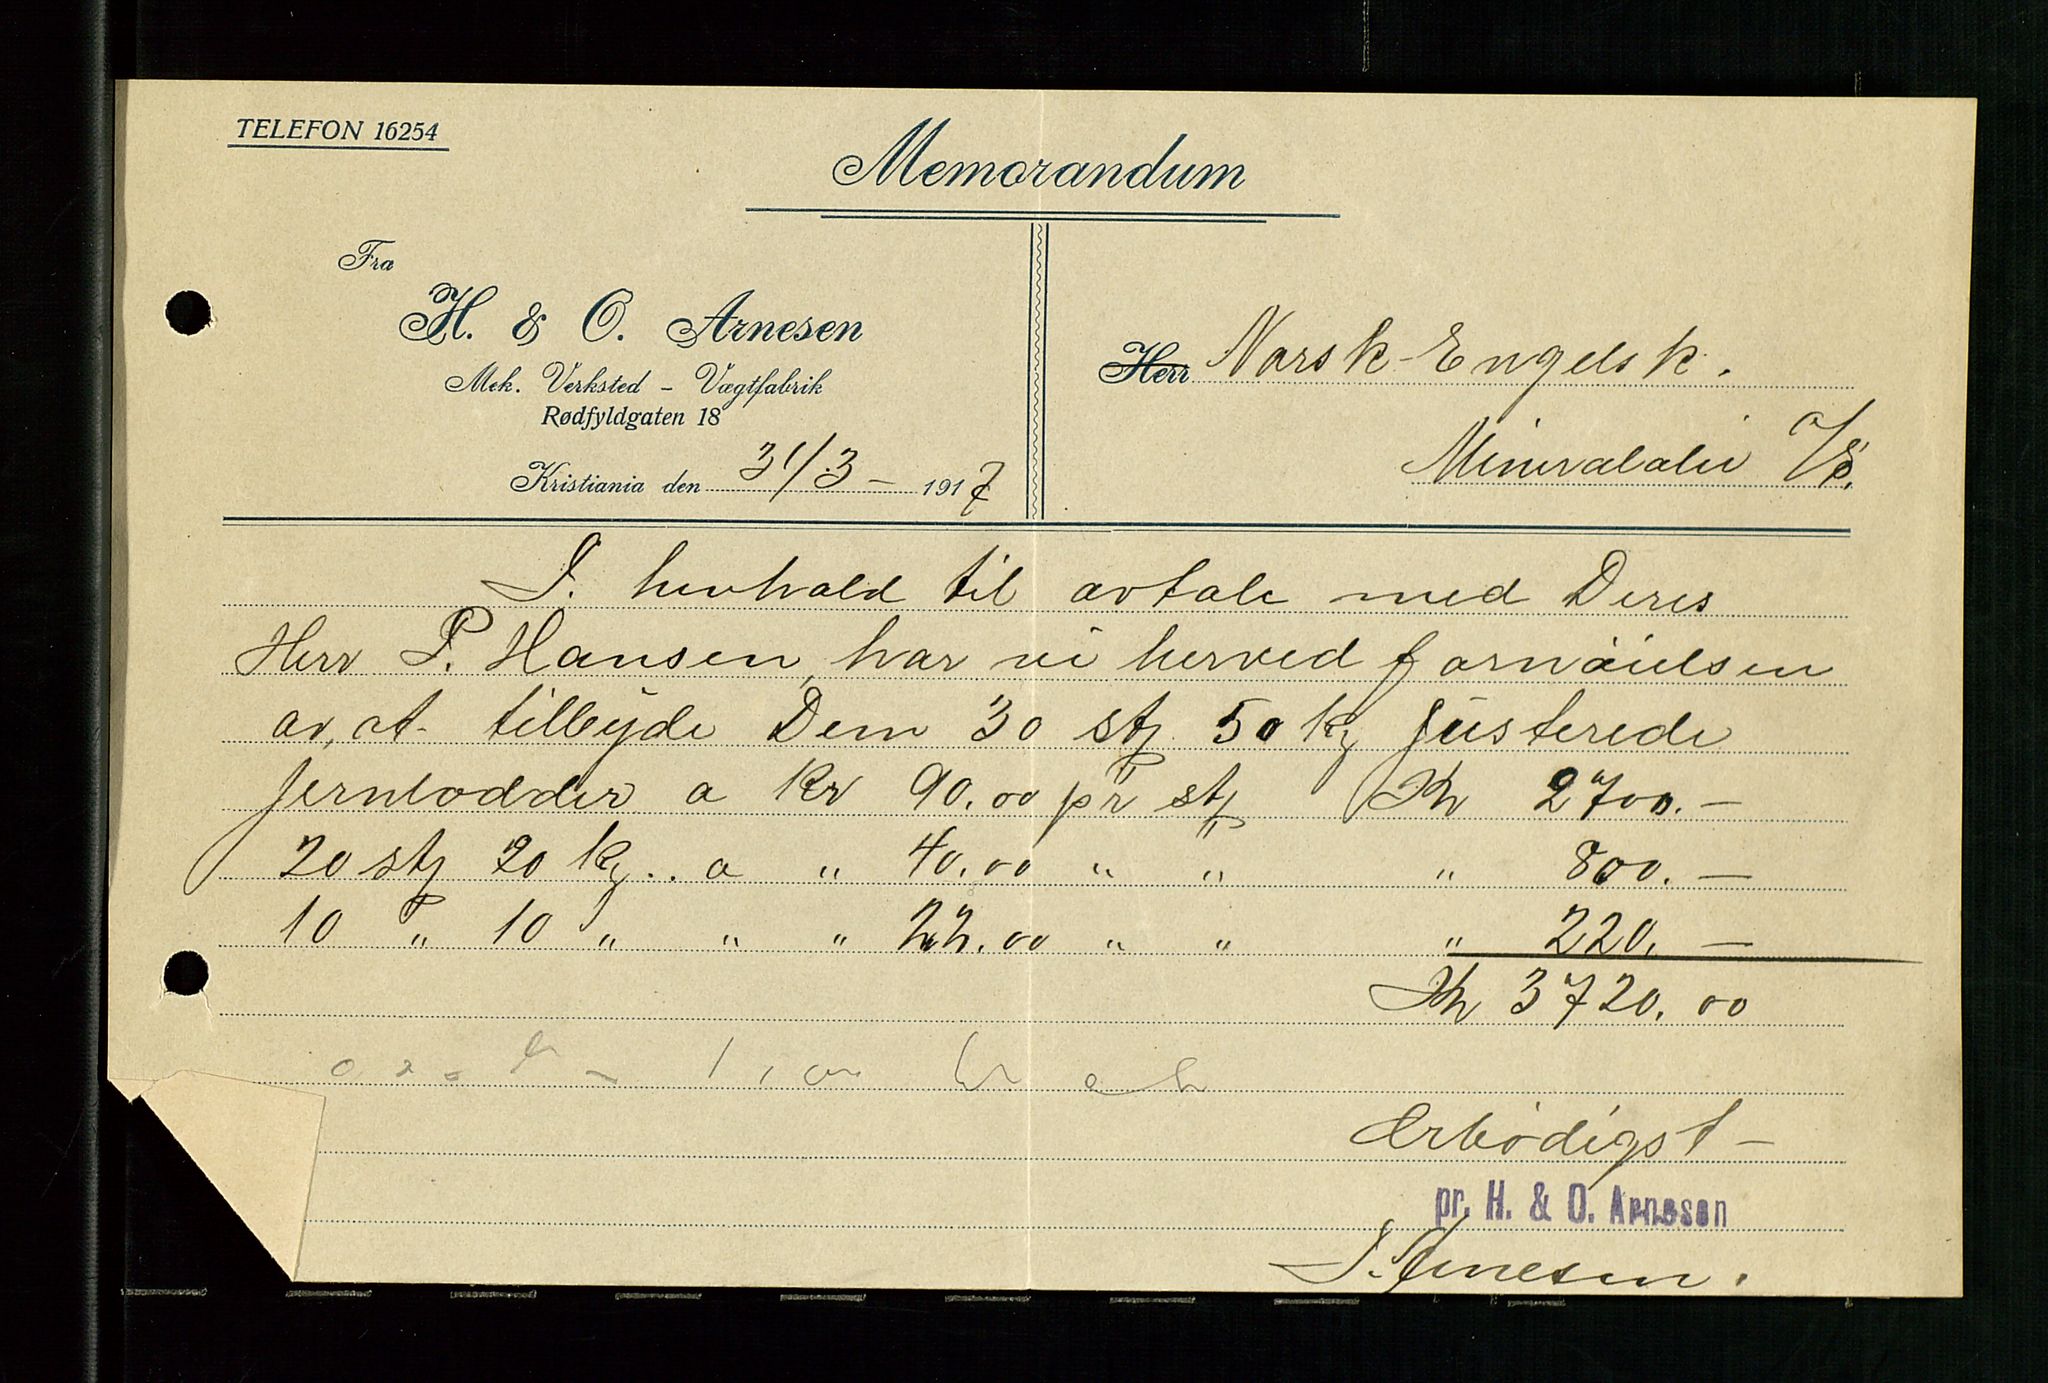 TELEFON 16254
Memorandum
Fra
H. & O. Arnesen
Mek. Verksted - Vægtfabrik
Rødfyldgaten 18
Kristiania den 31/3 - 1917
Herr Norsk-Engelsk.
Mineralolie A/S.
I henhold til avtale med Deres
Herr P. Hansen, har vi herved fornöielsen
av, at tilbyde Dem 30 stj 50 kg justerede
jernlodder a Kr 90.00 pr stj Kr 2700.-
20 stj 20 kg.. a " 40.00 " " " 800.-
10 " 10 " " " 22.00 " " " 220.-
Kr 3720.00
Ærbödigst -
pr. H. & O. Arnesen
Arnesen.